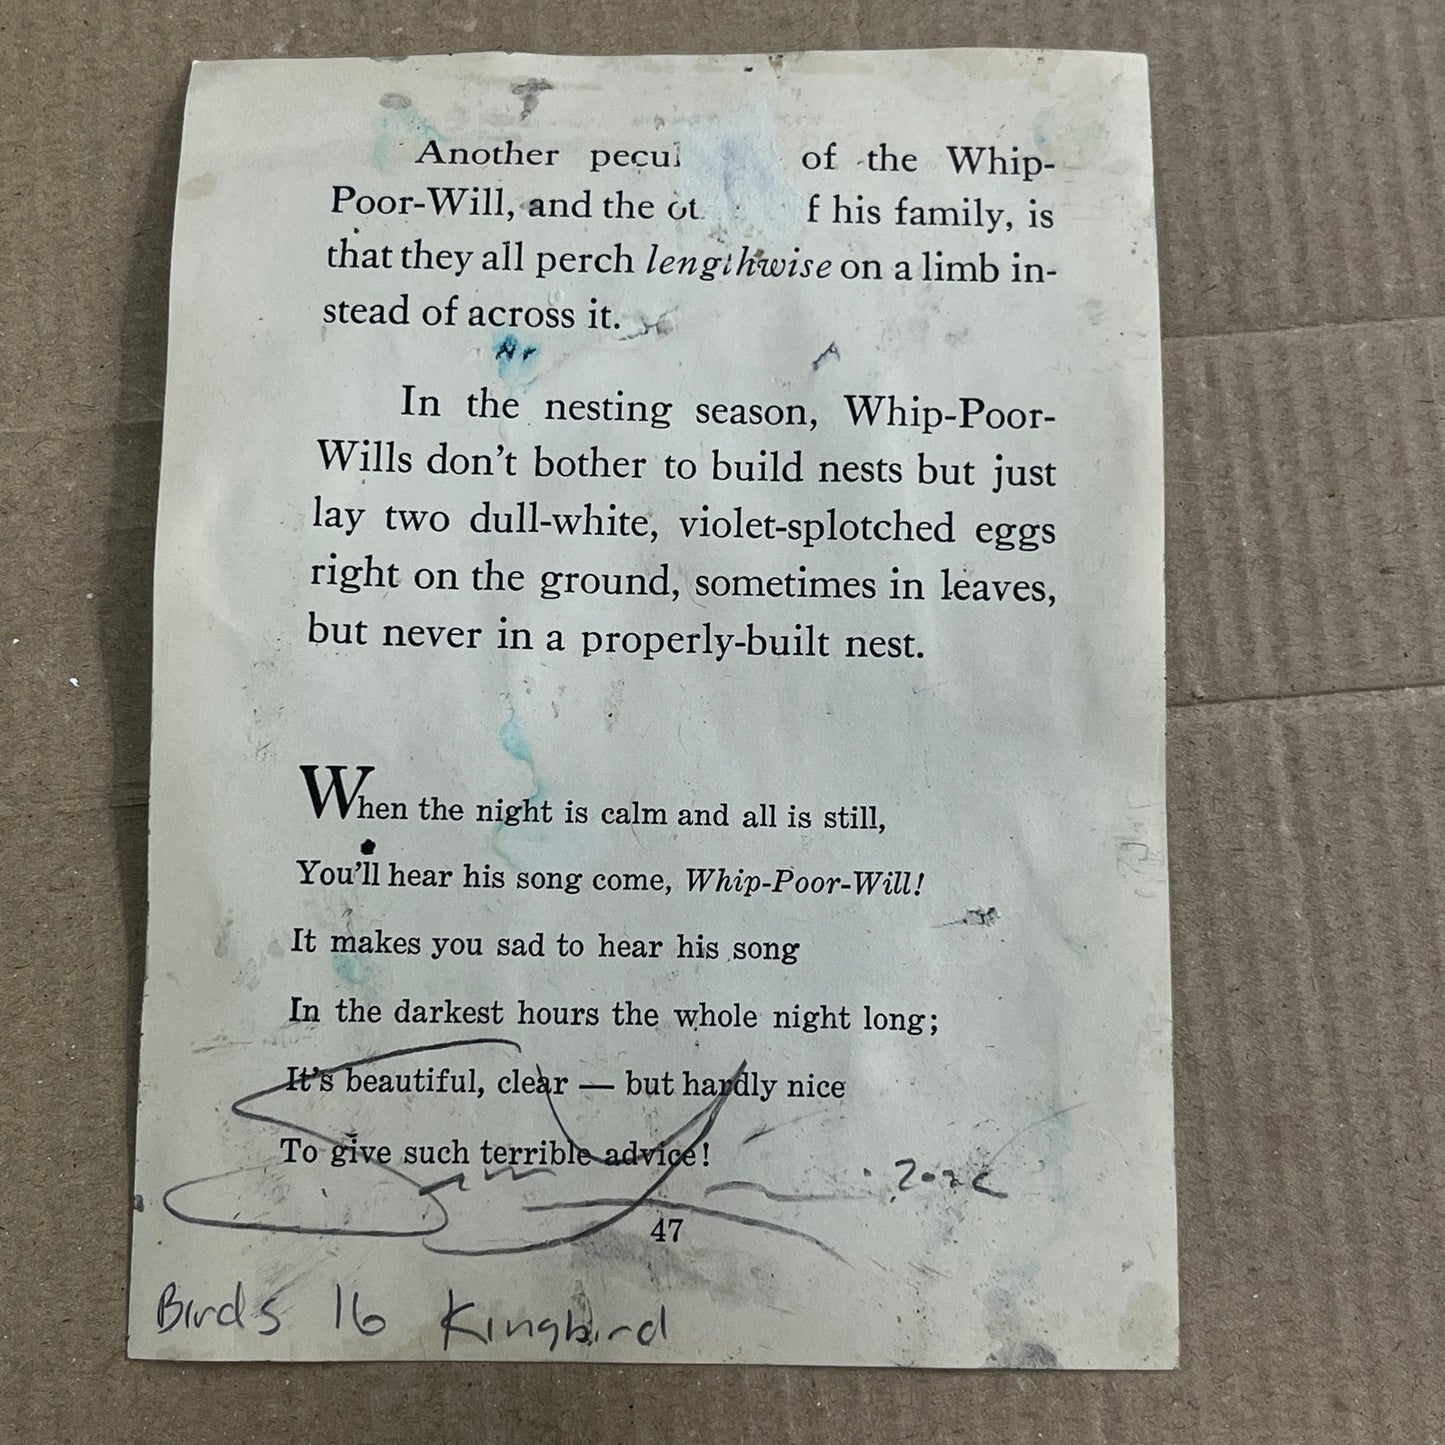 Another pecul of the Whip-
Poor-Will, and the ot f his family, is
that they all perch lengthwise on a limb in-
stead of across it.
In the nesting season, Whip-Poor-
Wills don't bother to build nests but just
lay two dull-white, violet-splotched eggs
right on the ground, sometimes in leaves,
but never in a properly-built nest.
When the night is calm and all is still,
You'll hear his song come, Whip-Poor-Will!
It makes you sad to hear his song
In the darkest hours the whole night long;
It's beautiful, clear — but hardly nice
To give such terrible advice!
47
Birds 16 Kingbird